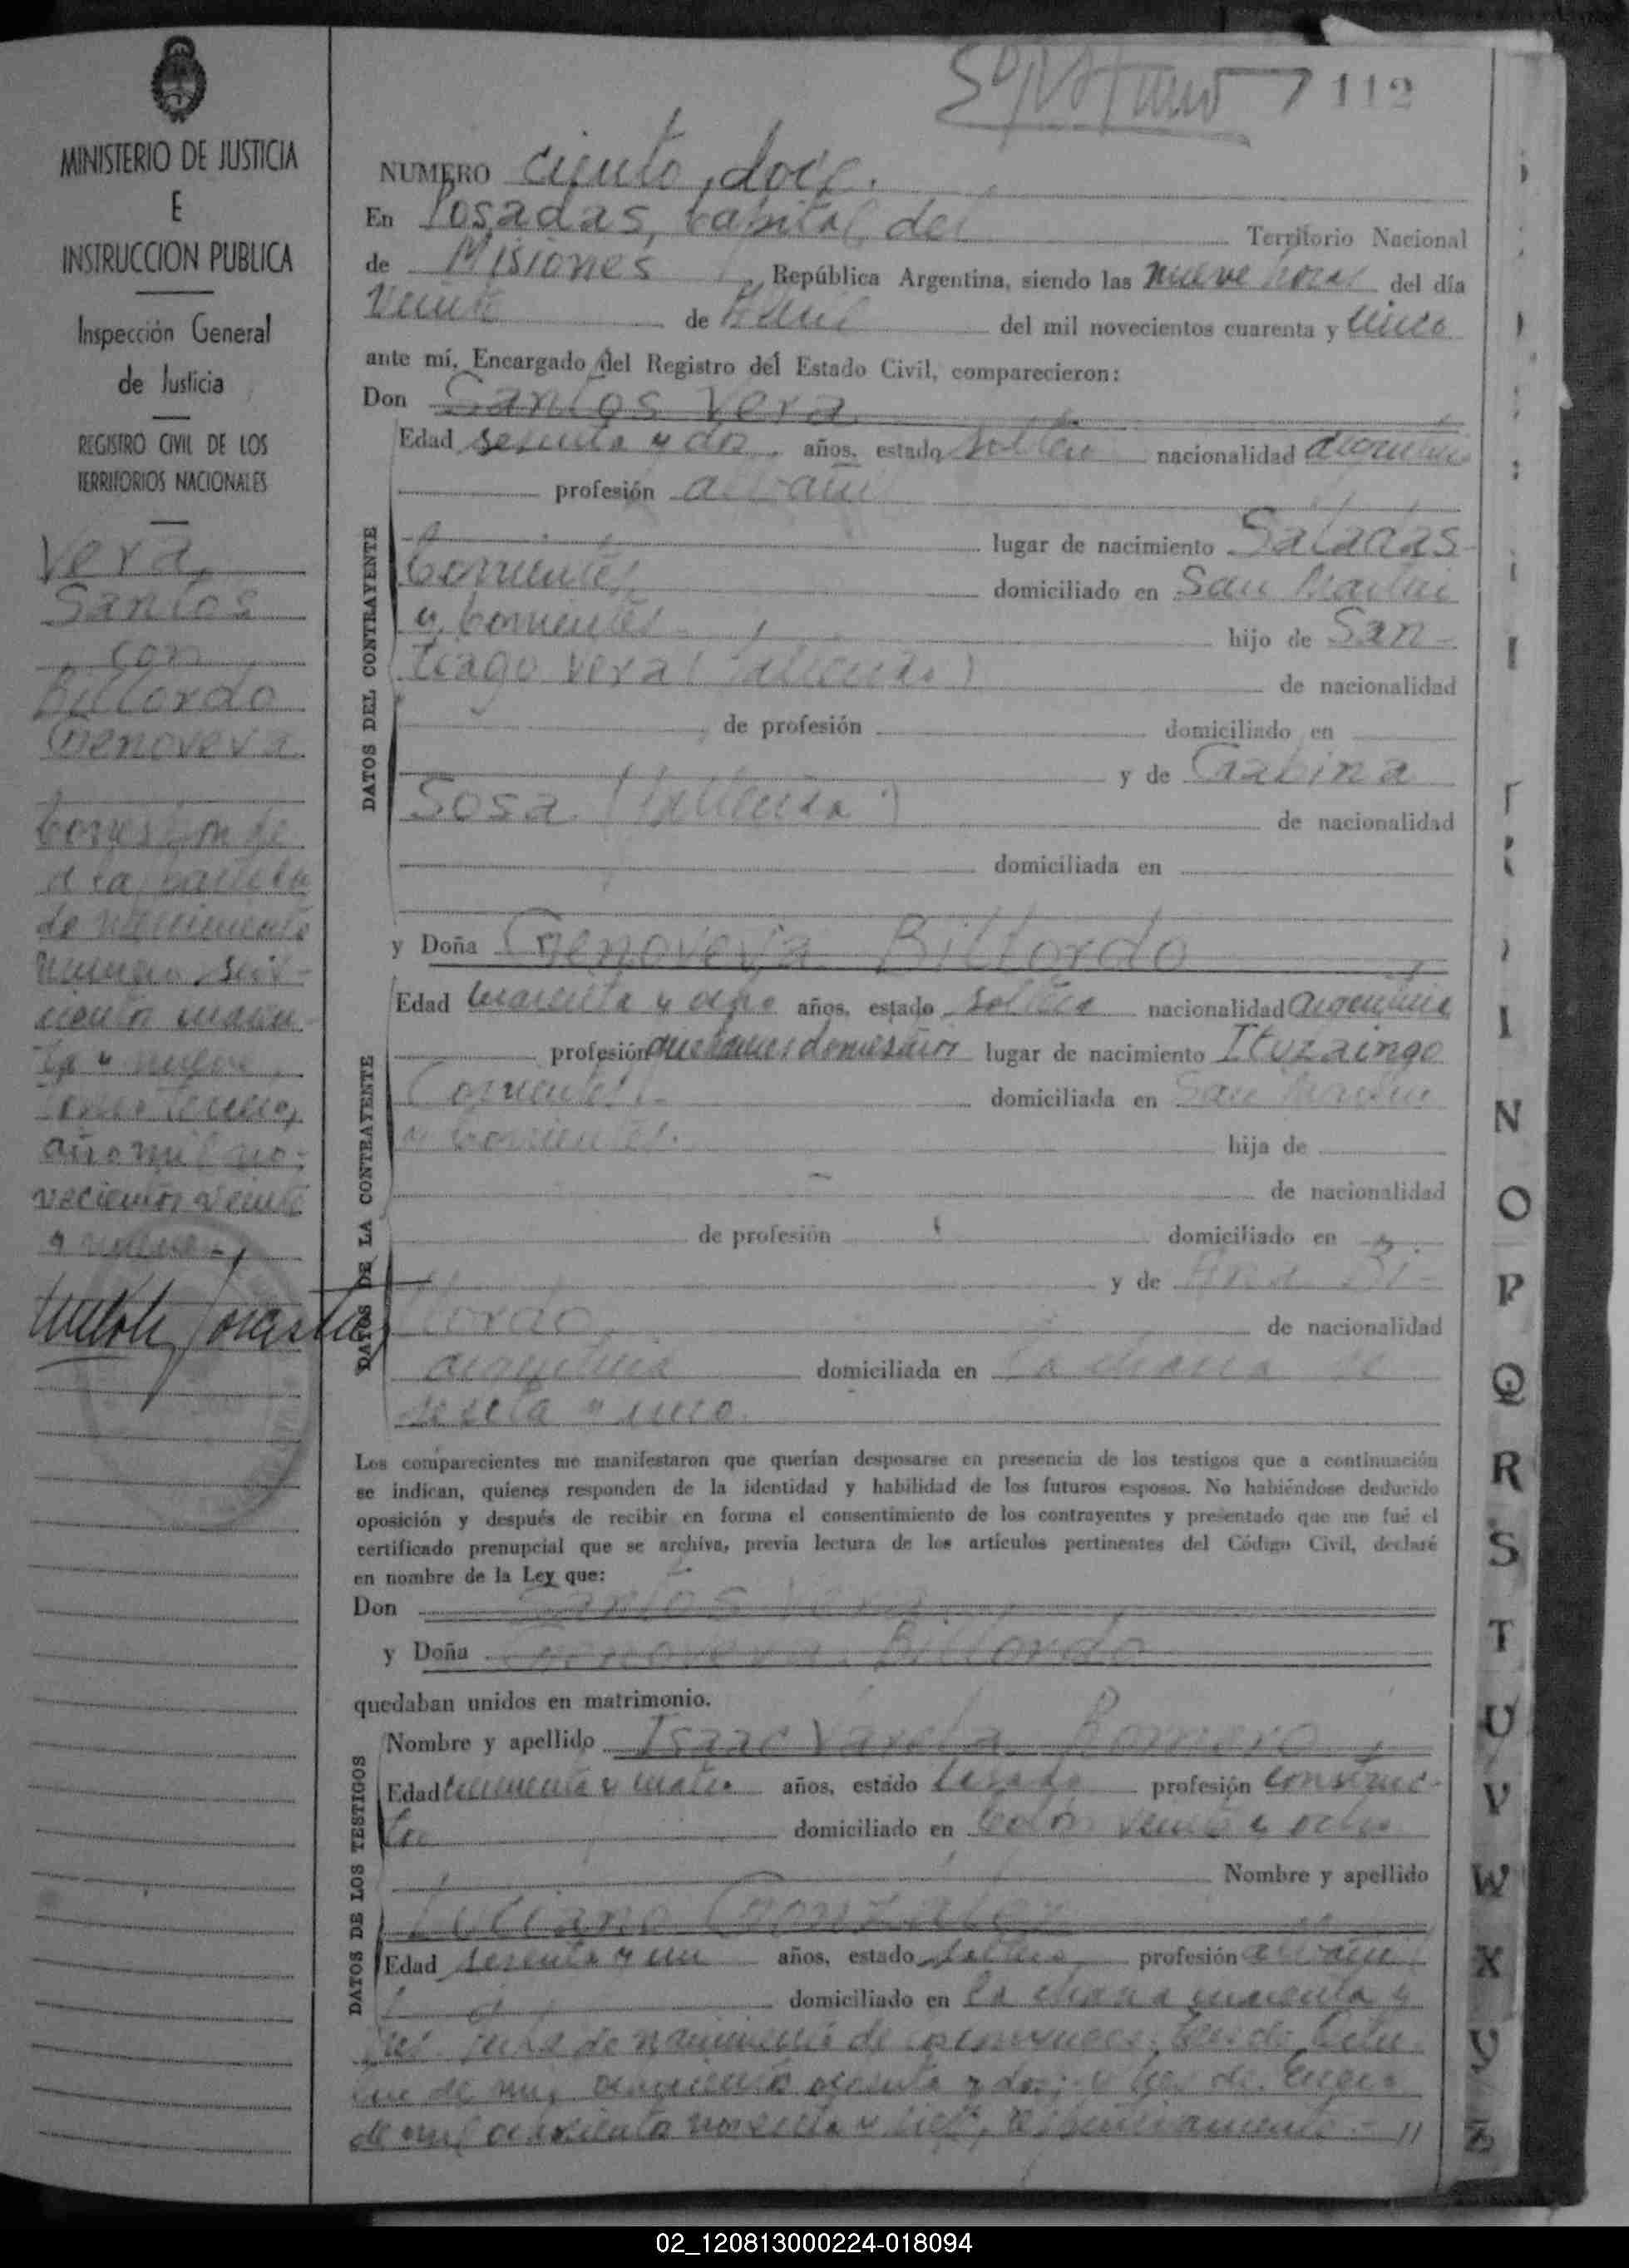 MINISTERIO DE JUSTICIA
E
INSTRUCCION PUBLICA
Inspección General
de Justicia
REGISTRO CIVIL DE LOS
TERRITORIOS NACIONALES
Vera,
Santos
con
Billordo
Genoveva
Corresponde
a la partida
de nacimiento
número seis-
cientos cuaren-
ta y nueve,
tomo tercero,
año mil no-
vecientos veinte
y nueve.-
112
NUMERO ciento doce.
En Posadas, Capital del Territorio Nacional
de Misiones, República Argentina, siendo las nueve horas del día
veinte de Abril del mil novecientos cuarenta y cinco
ante mí, Encargado del Registro del Estado Civil, comparecieron:
Don Santos Vera
Edad sesenta y dos años, estado soltero nacionalidad argentino
profesión albañil
DATOS DEL CONTRAYENTE
lugar de nacimiento Saladas
Corrientes, domiciliado en San Martin
y Corrientes hijo de San-
tiago Vera (fallecido) de nacionalidad
de profesión domiciliado en
y de Gabina
Sosa (fallecida) de nacionalidad
domiciliada en
y Doña Genoveva Billordo
Edad cuarenta y ocho años, estado soltera nacionalidad argentina
profesión quehaceres domésticos lugar de nacimiento Ituzaingo
DATOS DE LA CONTRAYENTE
Corrientes. domiciliada en San Martin
y Corrientes. hija de
de nacionalidad
de profesión domiciliado en
y de Ana Bi-
llordo, de nacionalidad
argentina domiciliada en la chacra
sesenta y uno.
Los comparecientes me manifestaron que querían desposarse en presencia de los testigos que a continuación
se indican, quienes responden de la identidad y habilidad de los futuros esposos. No habiéndose deducido
oposición y después de recibir en forma el consentimiento de los contrayentes y presentado que me fué el
certificado prenupcial que se archiva, previa lectura de los artículos pertinentes del Código Civil, declaré
en nombre de la Ley que:
Don Santos Vera
y Doña Genoveva Billordo
quedaban unidos en matrimonio.
DATOS DE LOS TESTIGOS
Nombre y apellido Isaac Varela Romero
Edad cincuenta y cuatro años, estado casado profesión construc-
tor domiciliado en Colón veinte y ocho
Nombre y apellido
Luciano Gonzalez
Edad sesenta y un años, estado soltero profesión albañil
domiciliado en la chacra cuarenta y
tres. fecha de nacimiento de
de mil ochocientos ochenta y dos; y tres de Enero
de mil ochocientos noventa y siete, respectivamente.- //
N
O
P
Q
R
S
T
U
V
W
X
Y
Z
02_120813000224-018094